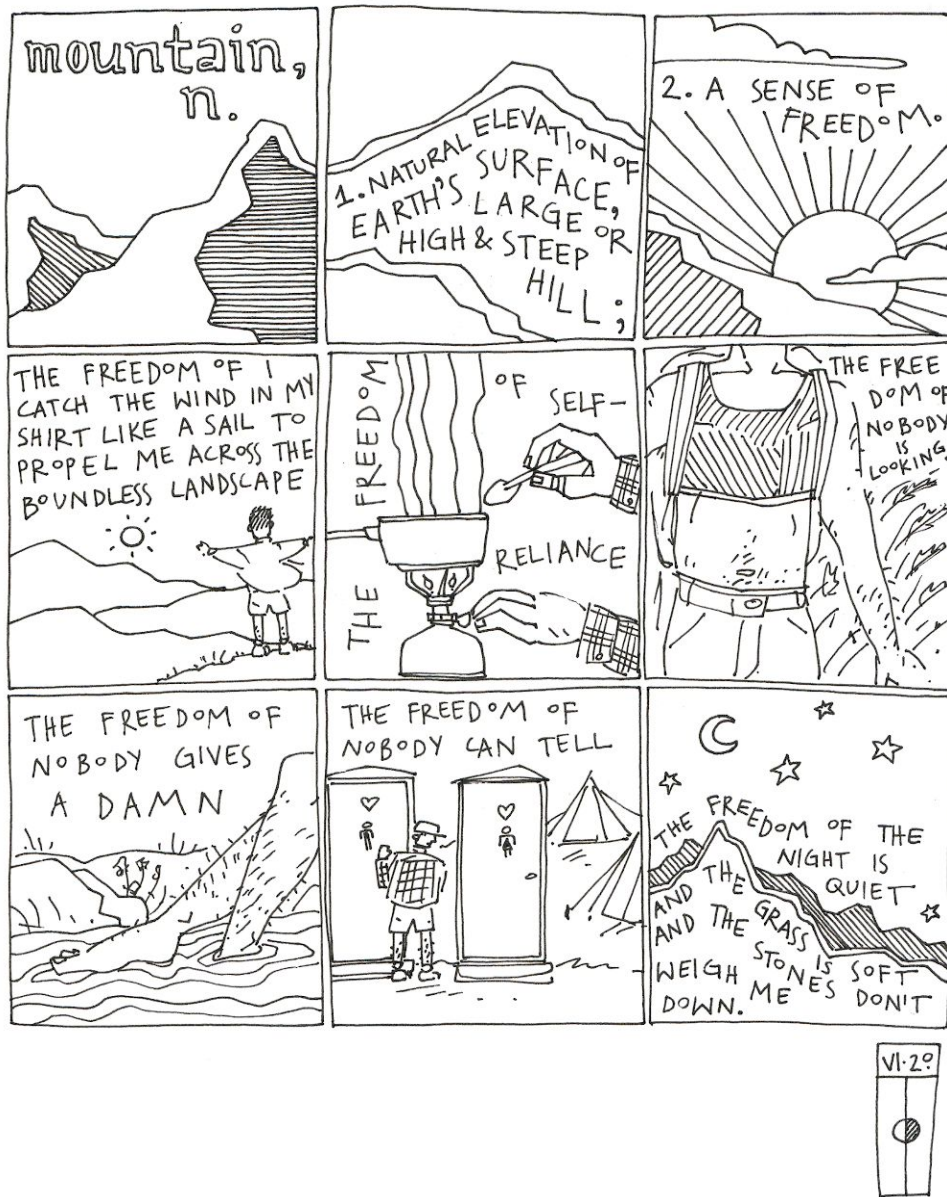 mountain,
n.
1. NATURAL ELEVATION OF
EARTH'S SURFACE,
LARGE OR
HIGH & STEEP
HILL;
2. A SENSE OF
FREEDOM.
THE FREEDOM OF I
CATCH THE WIND IN MY
SHIRT LIKE A SAIL TO
PROPEL ME ACROSS THE
BOUNDLESS LANDSCAPE
THE FREEDOM
OF
SELF-
RELIANCE
THE FREE
DOM OF
NOBODY
IS
LOOKING.
THE FREEDOM OF
NOBODY GIVES
A DAMN
THE FREEDOM OF
NOBODY CAN TELL
THE FREEDOM OF THE
NIGHT IS
QUIET
AND THE GRASS IS SOFT
AND THE STONES DON'T
WEIGH ME
DOWN.
VI·20